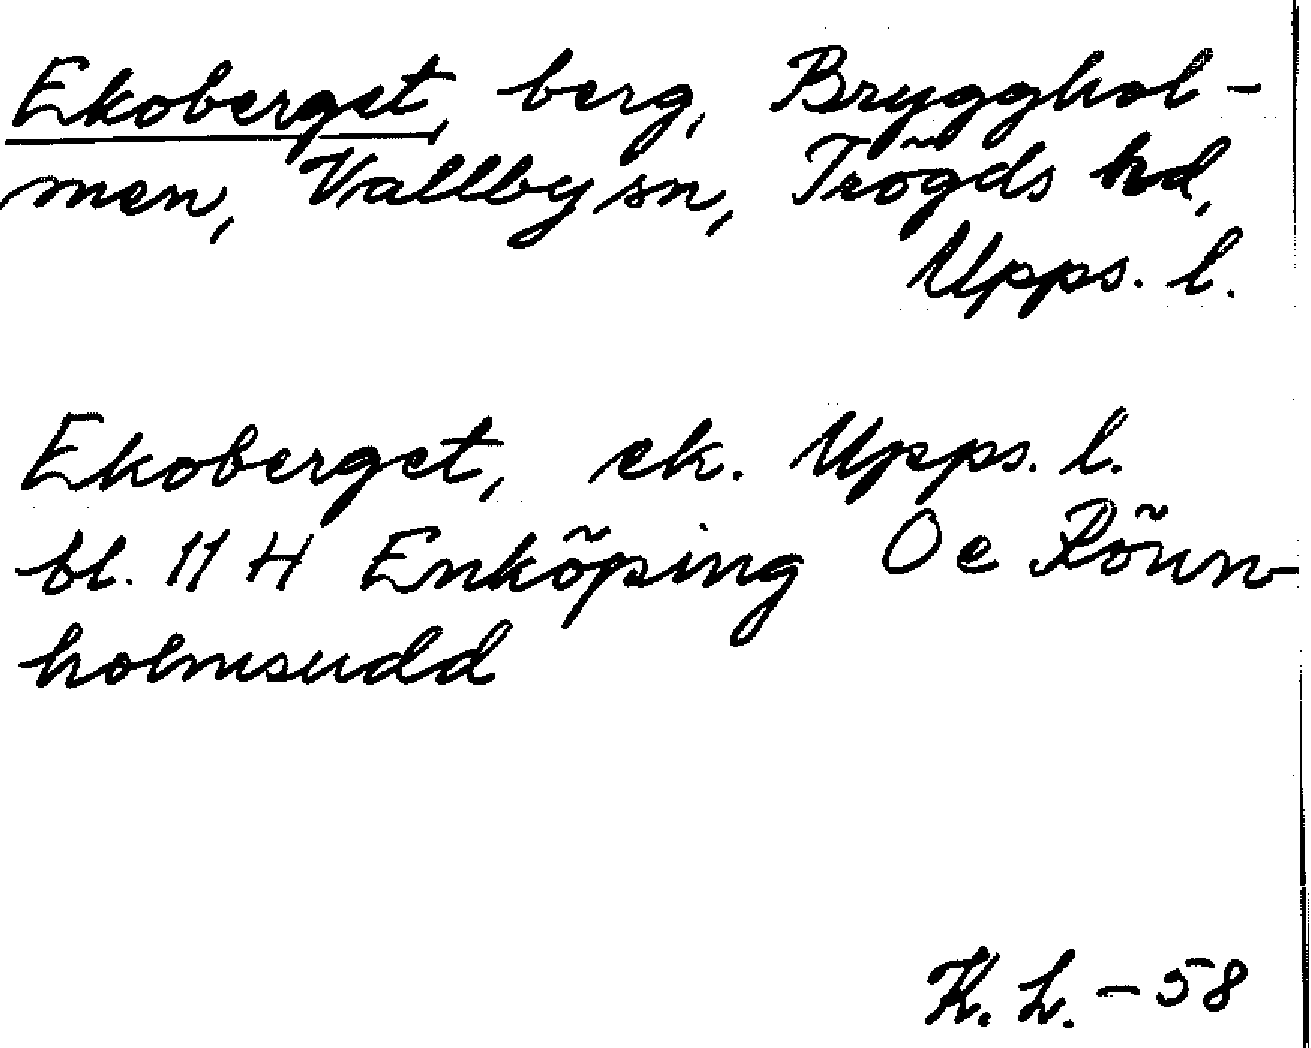 Ekoberget, berg, Brygghol-
men, Vallby sn, Trögds hd,
Upps. l.
Ekoberget, ek. Upps. l.
bl. 11 H Enköping 0 e Rönn-
holmsudd
K. L. - 58